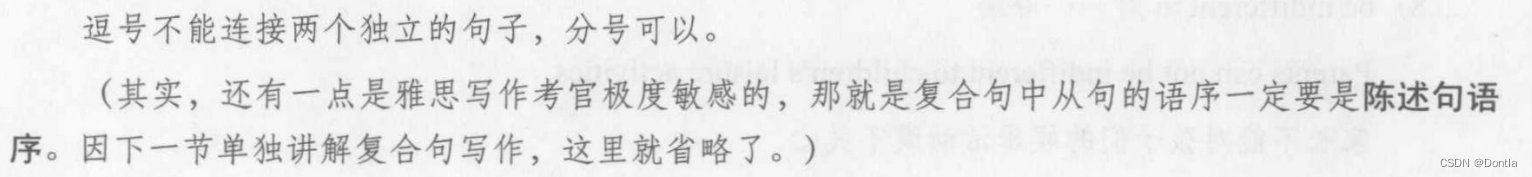 逗号不能连接两个独立的句子，分号可以。
（其实，还有一点是雅思写作考官极度敏感的，那就是复合句中从句的语序一定要是陈述句语
序。因下一节单独讲解复合句写作，这里就省略了。）
CSDN @Dontla